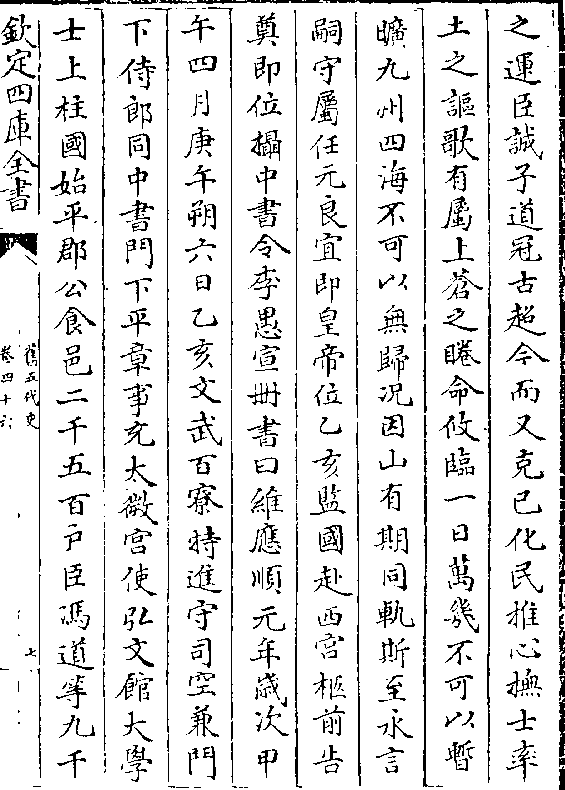 之運臣誠子道冠古超今而又克己化民推心撫士率
土之謳歌有屬上蒼之睠命攸臨一日萬幾不可以暫
曠九州四海不可以無歸况因山有期同軌斯至永言
嗣守屬任元良宜即皇帝位乙亥監國赴西宫柩前告
奠即位攝中書令李愚宣册書曰維應順元年歳次甲
午四月庚午朔六日乙亥文武百寮特進守司空兼門
下侍郎同中書門下平章事充太微宫使弘文館大學
士上柱國始平郡公食邑二千五百户臣馮道等九千
欽定四庫全書
舊五代史
卷四十六
七